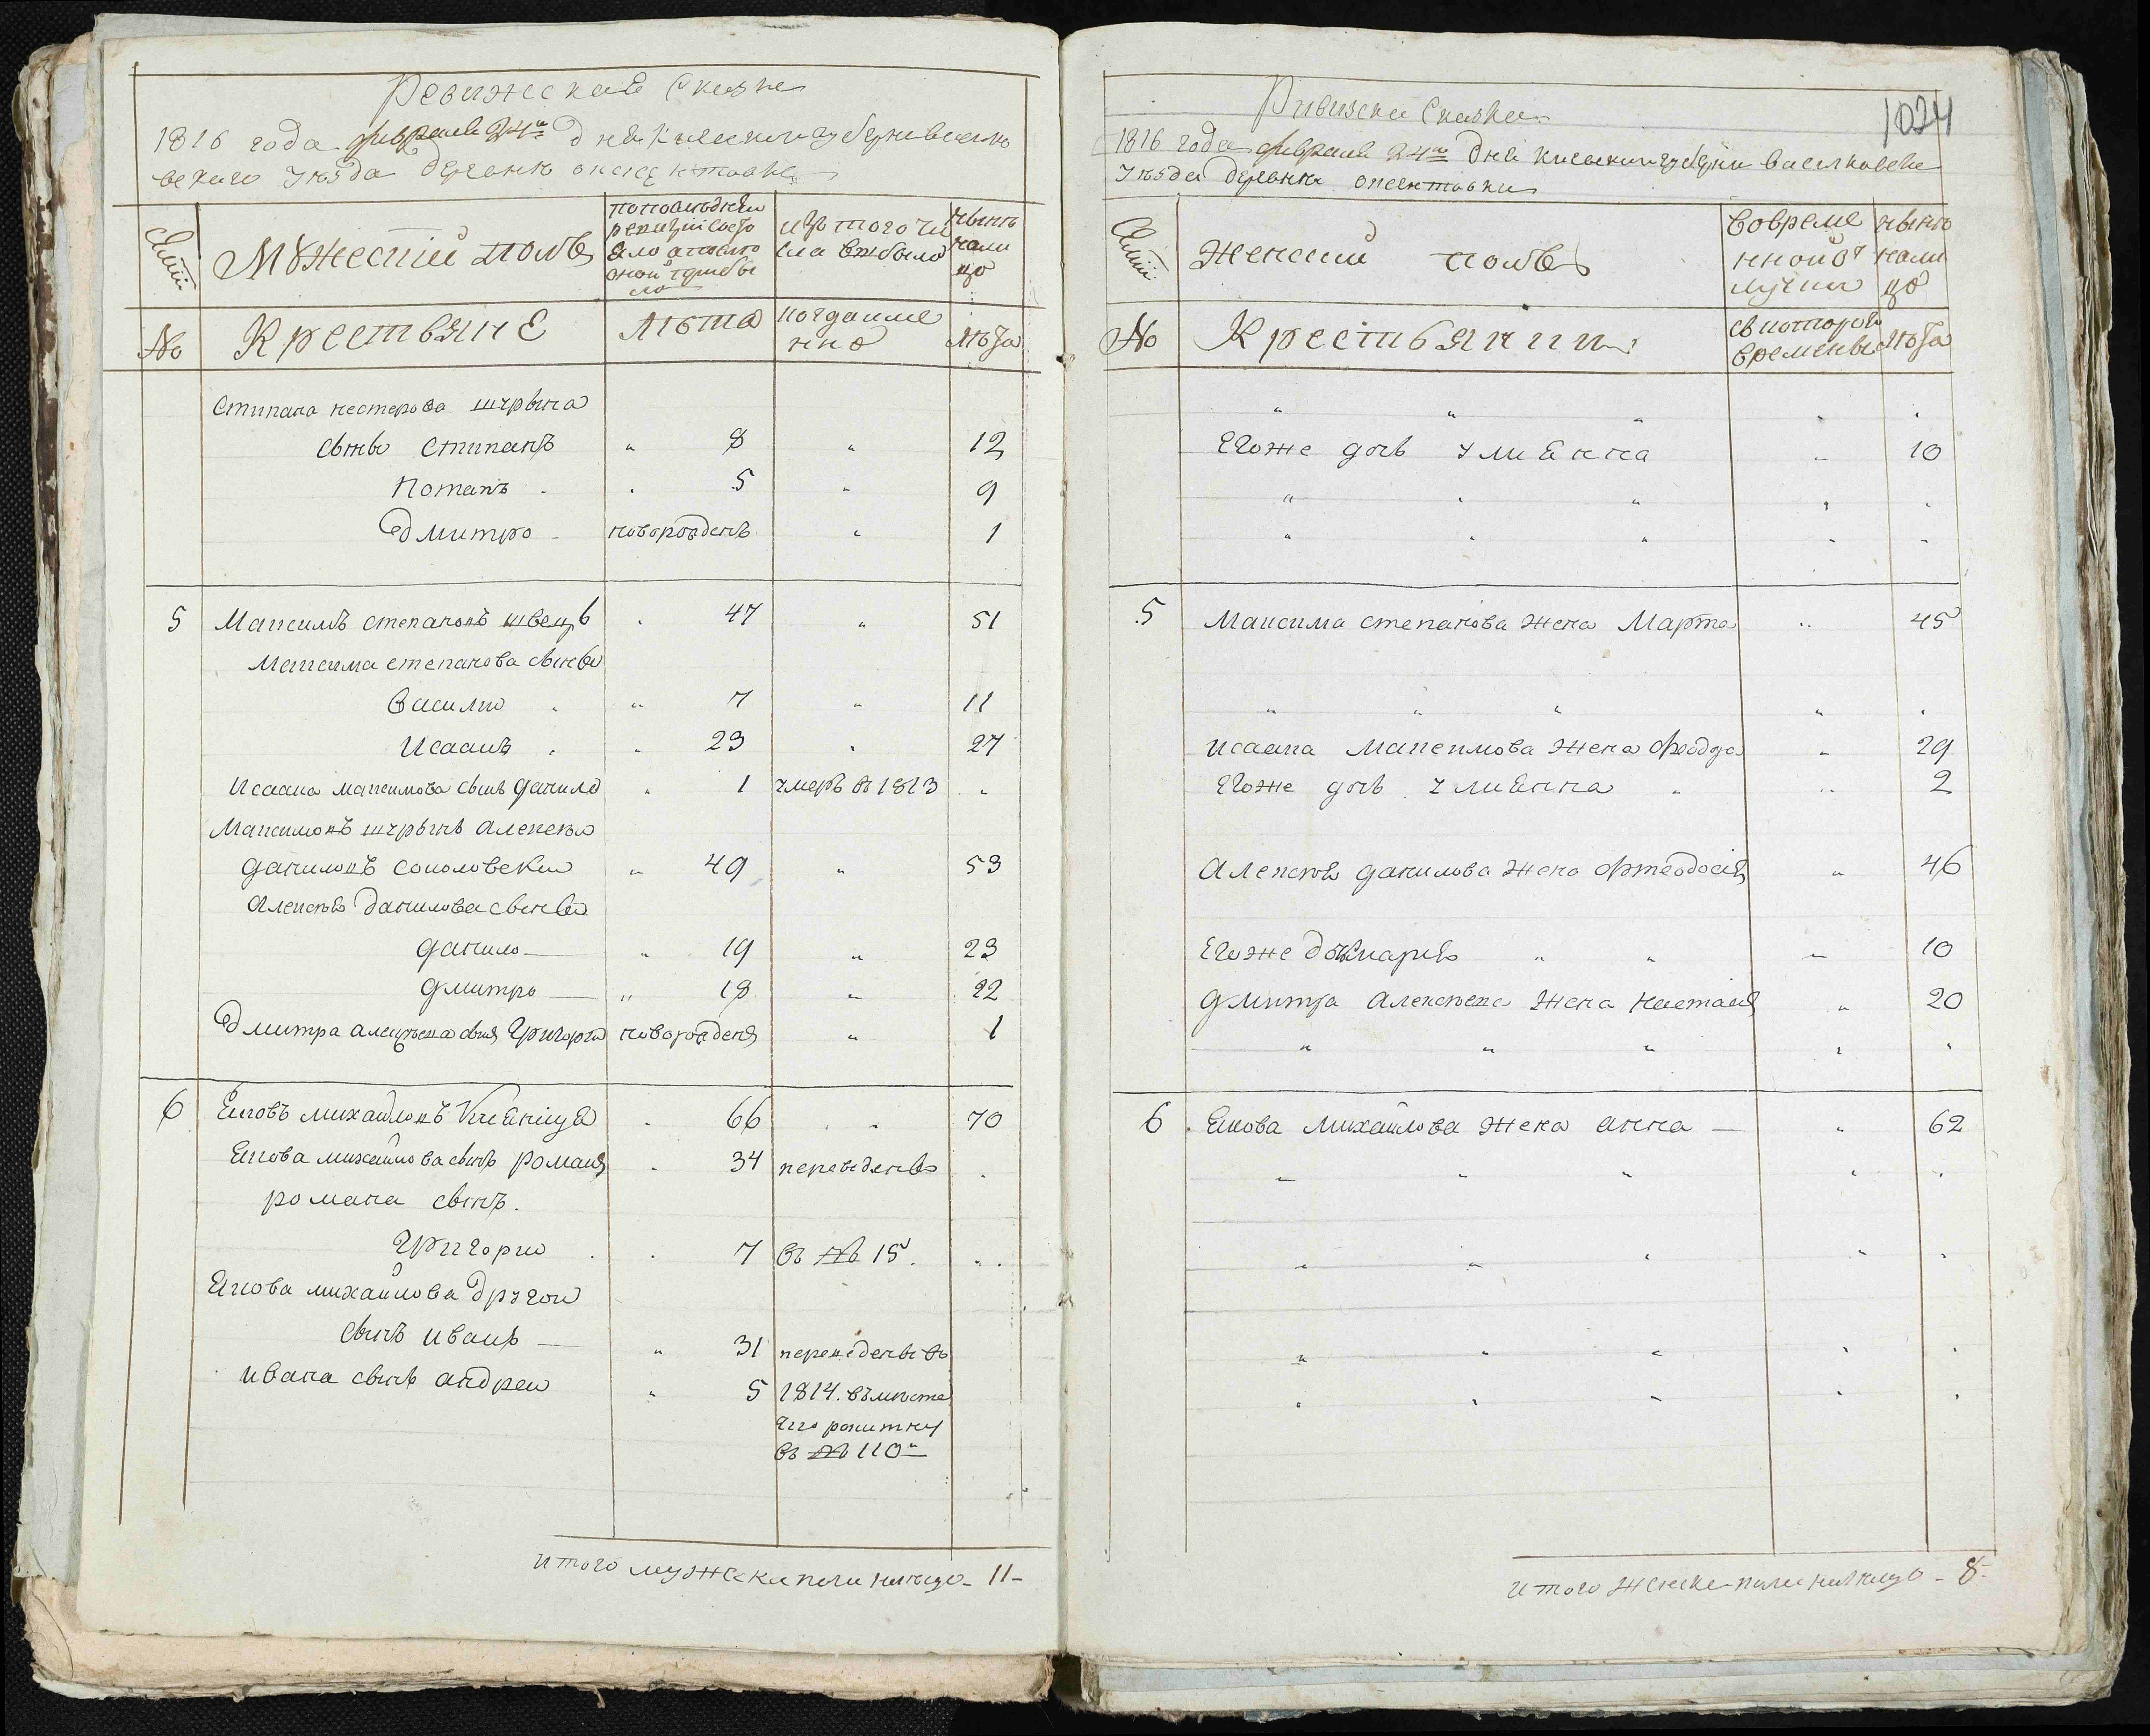 Ревижская Сказка
1816 года февраля 24го дня Киевской губернии Василков
ского уезда деревни
Семьи
Мужеский полъ
по последней
ревизии состо
яло а после
оной прибы
ло
изъ того чи
сла выбыло
ныне
нали
цо
No
Крестьяне
лѣта
когда име
нно
лѣта
Стипана нестерова шурина
сыны Стипанъ " 8 " 12
Потапъ " 5 " 9
Дмитро новорожденъ " 1
5 Максимъ степановъ швецъ 47 " 51
Максима степанова сыны
Василий " 7 " 11
Исаакъ " 23 " 27
Исаака максимова сынъ данило " 1 умеръ в 1813 "
Максимовъ шуринъ алексей
даниловъ соколовский " 49 " 53
Алексея данилова сыны
данило " 19 " 23
дмитро " 18 " 22
Дмитра алексеева сынъ Григорий новорожденъ " 1
6 Яковъ михайловъ 66 " 70
Якова михайлова сынъ романъ 34 переведенъ
романа сынъ
Григорий 7 въ № 15 "
Якова михайлова другой
сынъ иванъ " 31 переведены въ
ивана сынъ андрей " 5 1814. въместа
въ № 110й
итого мужеска пола налицо - 11 -
1024
Ревижска Сказка
1816 года февраля 24го дня киевской губернии василковска
уезда деревни
Семьи
Женский полъ
Во време
нной от
лучки
ныне
нали
цо
No
Крестьянки
съ которого
времены
лѣта
" " " " "
Егоже дочь улияна " 10
" " " " "
" " " " "
5 Максима степанова жена Марта " 45
" " " " "
исаака Максимова жена феодора " 29
Егоже дочь улияна " " 2
Алексея данилова жена феодосия " 46
Егоже дочь мария " " " 10
дмитра алексеева жена настасия " 20
" " " " "
6 Якова михайлова жена анна " 62
" " " " "
" " " " "
" " " " "
" " " " "
итого женска пола налицо - 8 -